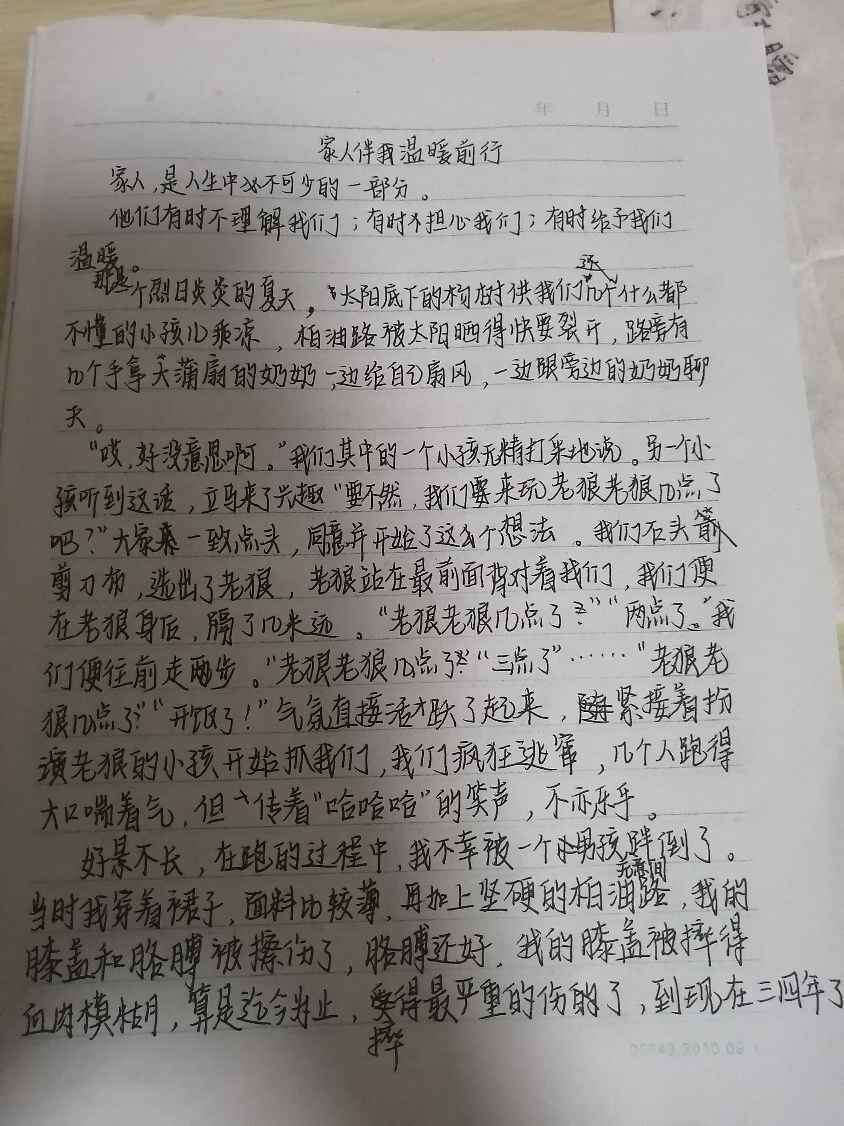 年 月 日
家人伴我温暖前行
家人,是人生中必不可少的一部分。
他们有时不理解我们;有时担心我们;有时给予我们
温暖。
那是一个烈日炎炎的夏天,太阳底下的杨树供我们这几个什么都
不懂的小孩儿乘凉,柏油路被太阳晒得快要裂开,路旁有
几个手拿大蒲扇的奶奶一边给自己扇风,一边跟旁边的奶奶聊
天。
“哎,好没意思啊。”我们其中的一个小孩无精打采地说。另一个小
孩听到这话,立马来了兴趣“要不然,我们要来玩老狼老狼几点了
吧?”大家一致点头,同意并开始了这么个想法。我们石头
剪刀布,选出了老狼,老狼站在最前面背对着我们,我们便
在老狼身后,隔了几米远。“老狼老狼几点了?”“两点了。”我
们便往前走两步。“老狼老狼几点了?”“三点了”……“老狼老
狼几点了?”“开饭了!”气氛直接活跃了起来,紧接着扮
演老狼的小孩开始抓我们,我们疯狂逃窜,几个人跑得
大口喘着气,但传着“哈哈哈”的笑声,不亦乐乎。
好景不长,在跑的过程中,我不幸被一个男孩无意间跘倒了。
当时我穿着裙子,面料比较薄,再加上坚硬的柏油路,我的
膝盖和胳膊被擦伤了,胳膊还好,我的膝盖被摔得
血肉模糊,算是迄今为止,摔得最严重的伤的了,到现在三四年了